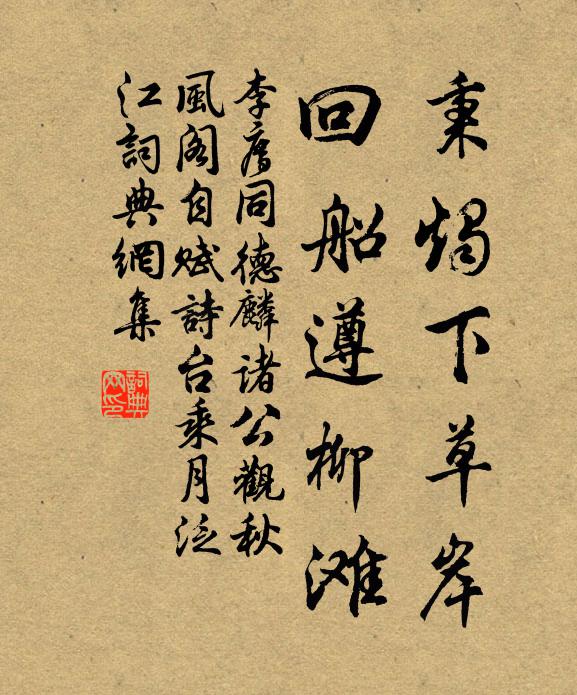 秉燭下草岸
回船遵柳滩
李廌同德麟諸公觀秋
風閣自赋詩台乘月泛
江詞典網集
詞典
网印